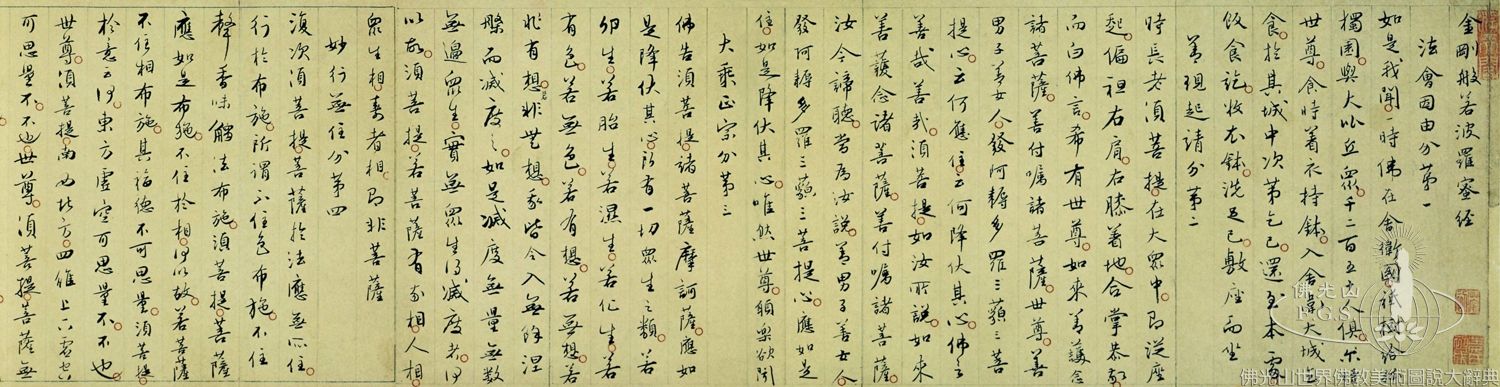 金剛般若波羅蜜经
法會因由分第一
如是我聞一時佛在舍衛國祇樹给
獨園與大比丘眾千二百五十人俱尔
世尊食時着衣持鉢入舍衛大城乞
食於其城中次第乞已還至本處
飯食訖收衣鉢洗足已敷座而坐
善現起請分第二
時長老須菩提在大眾中即從座
起偏袒右肩右膝着地合掌恭敬
而白佛言希有世尊如來善護念
諸菩薩善付囑諸菩薩世尊善
男子善女人發阿耨多羅三藐三菩
提心云何應住云何降伏其心佛言
善哉善哉須菩提如汝所說如來
善護念諸菩薩善付囑諸菩薩
汝今諦聽當為汝說善男子善女人
發阿耨多羅三藐三菩提心應如是
住如是降伏其心唯然世尊願樂欲聞
大乘正宗分第三
佛告須菩提諸菩薩摩訶薩應如
是降伏其心所有一切眾生之類若
卵生若胎生若濕生若化生若
有色若無色若有想若無想若
非有想非無想我皆令入無餘涅
槃而滅度之如是滅度無量無數
無邊眾生實無眾生得滅度者何
以故須菩提若菩薩有我相人相
眾生相壽者相即非菩薩
妙行無住分第四
復次須菩提菩薩於法應無所住
行於布施所謂不住色布施不住
聲香味觸法布施須菩提菩薩
應如是布施不住於相何以故若菩薩
不住相布施其福德不可思量須菩提
於意云何東方虛空可思量不不也
世尊須菩提南西北方四維上下虛空
可思量不不也世尊須菩提菩薩無
佛光山
F.G.S.
佛光山世界佛教美術圖說大辭典